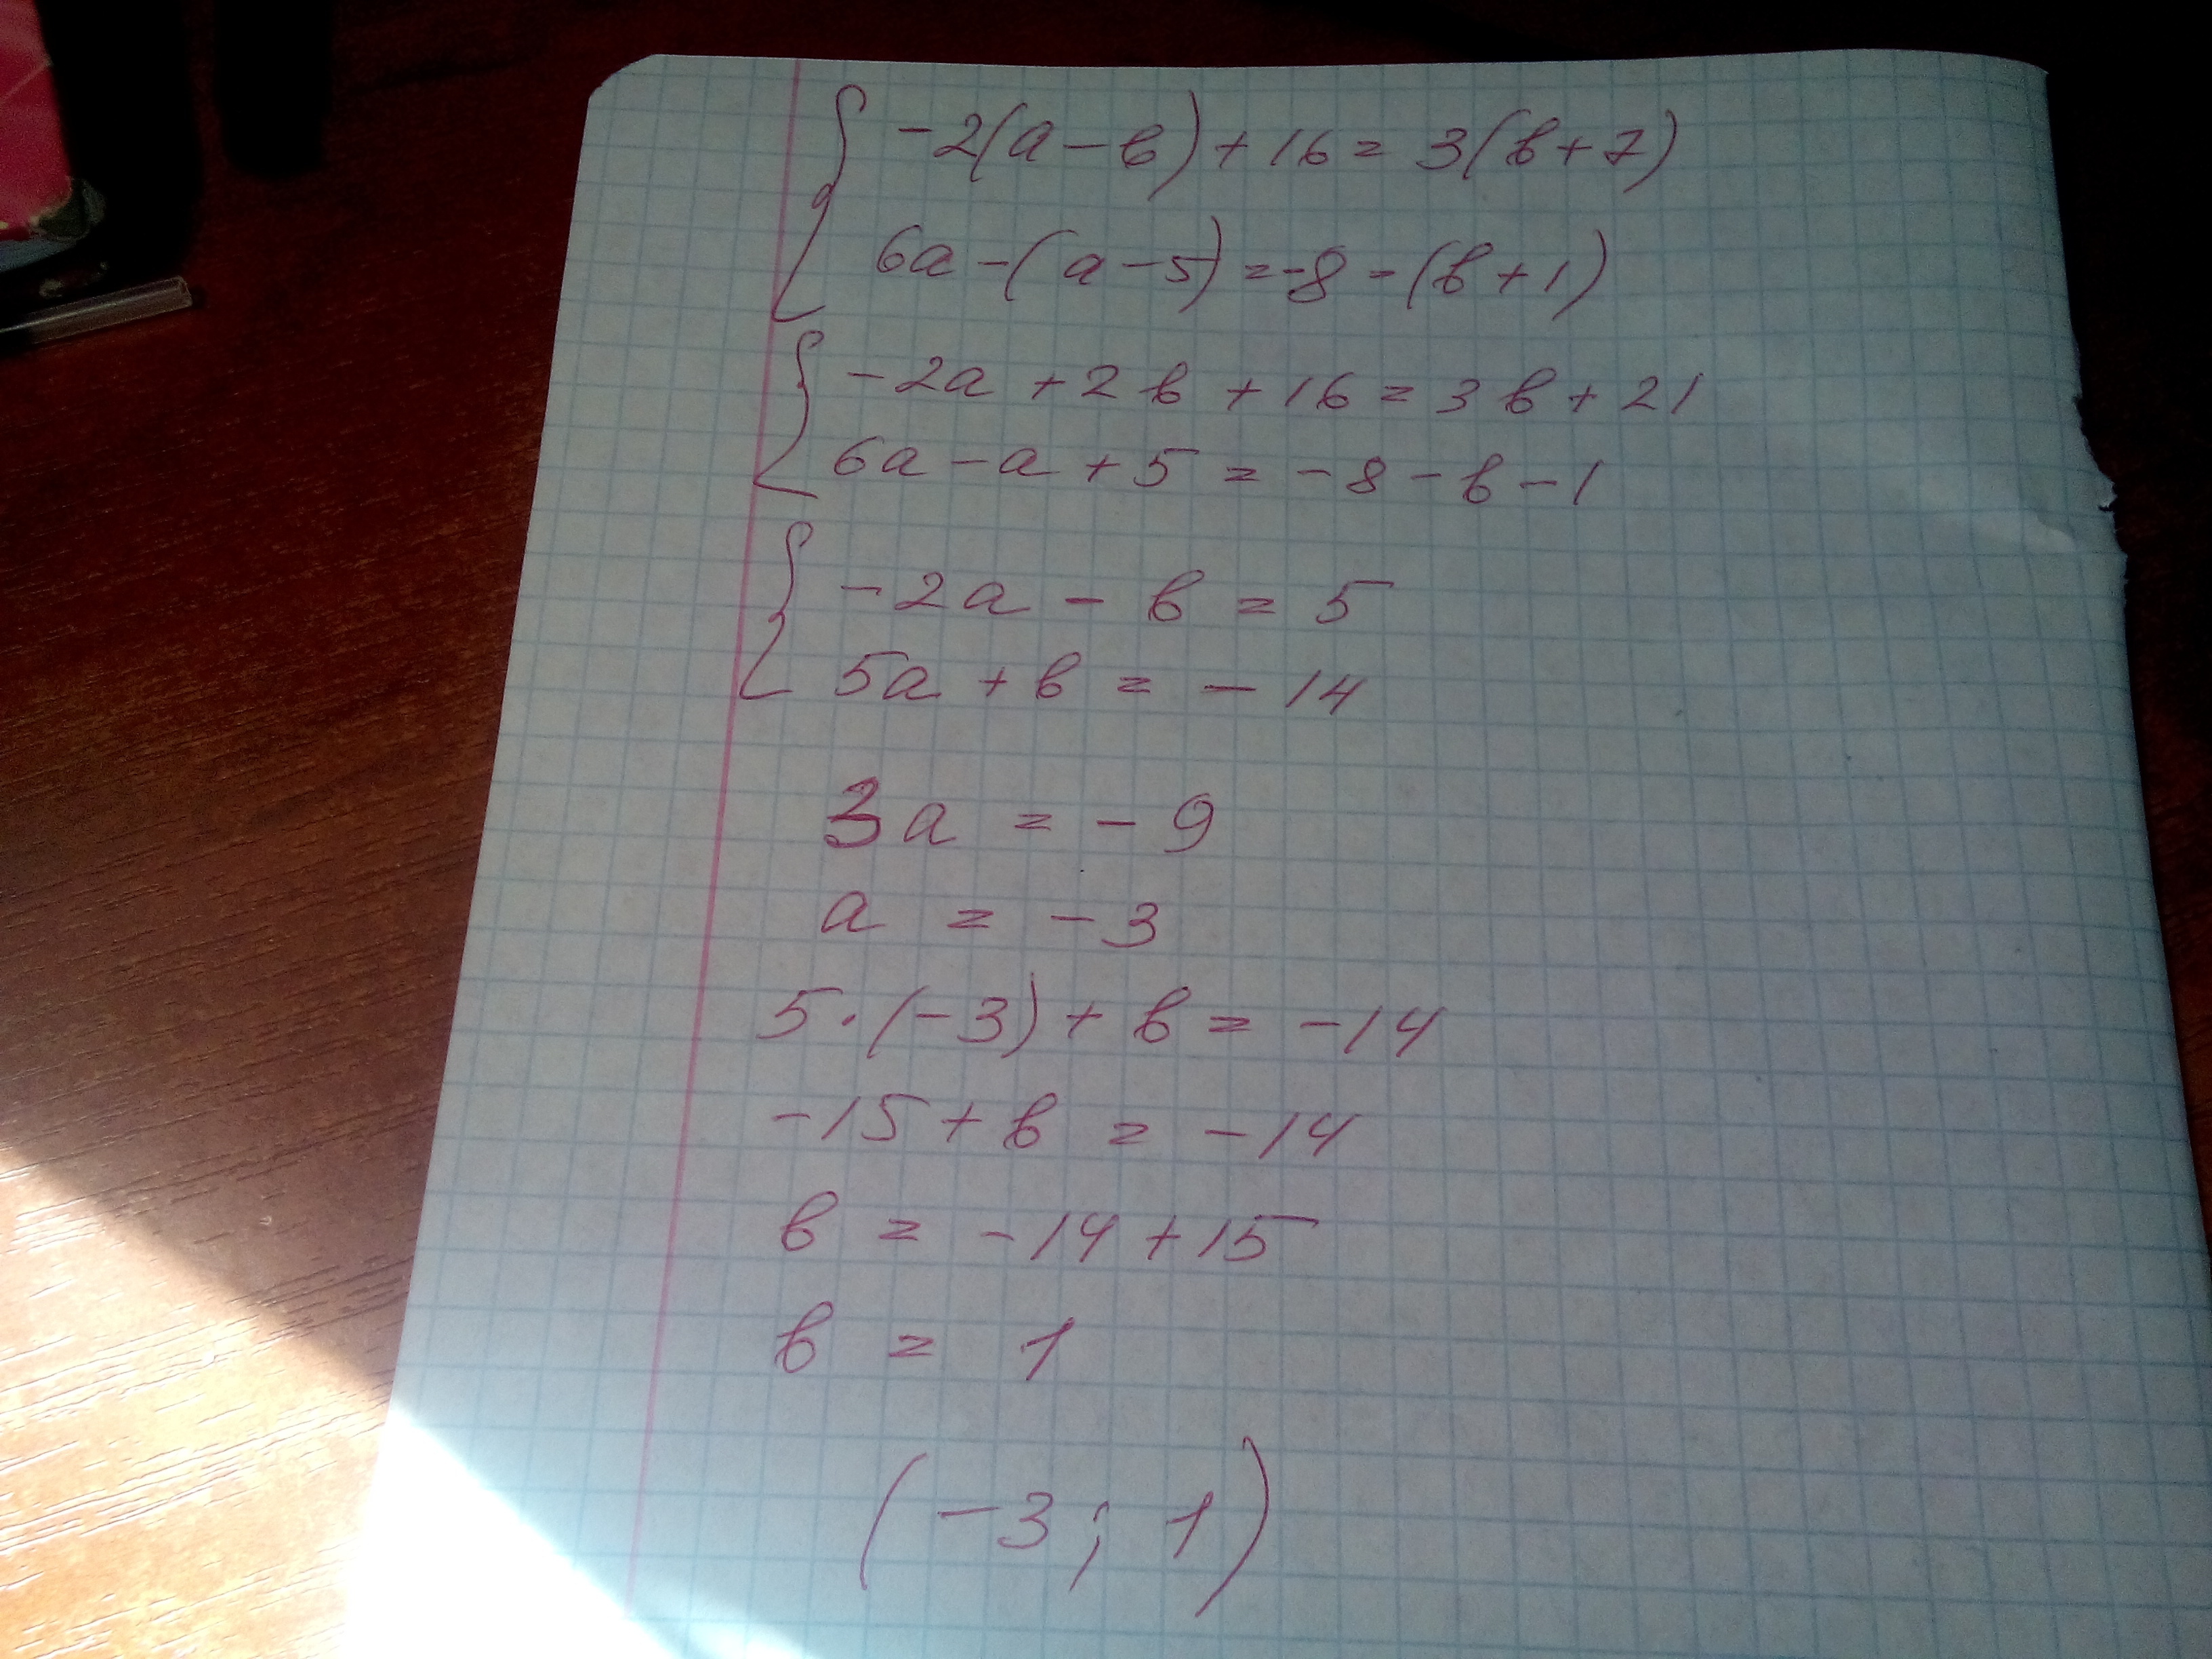 { -2(a-b)+16=3(b+7)
6a-(a-5)=-8-(b+1)
{ -2a+2b+16=3b+21
6a-a+5=-8-b-1
{ -2a-b=5
5a+b=-14
3a=-9
a=-3
5·(-3)+b=-14
-15+b=-14
b=-14+15
b=1
(-3;1)